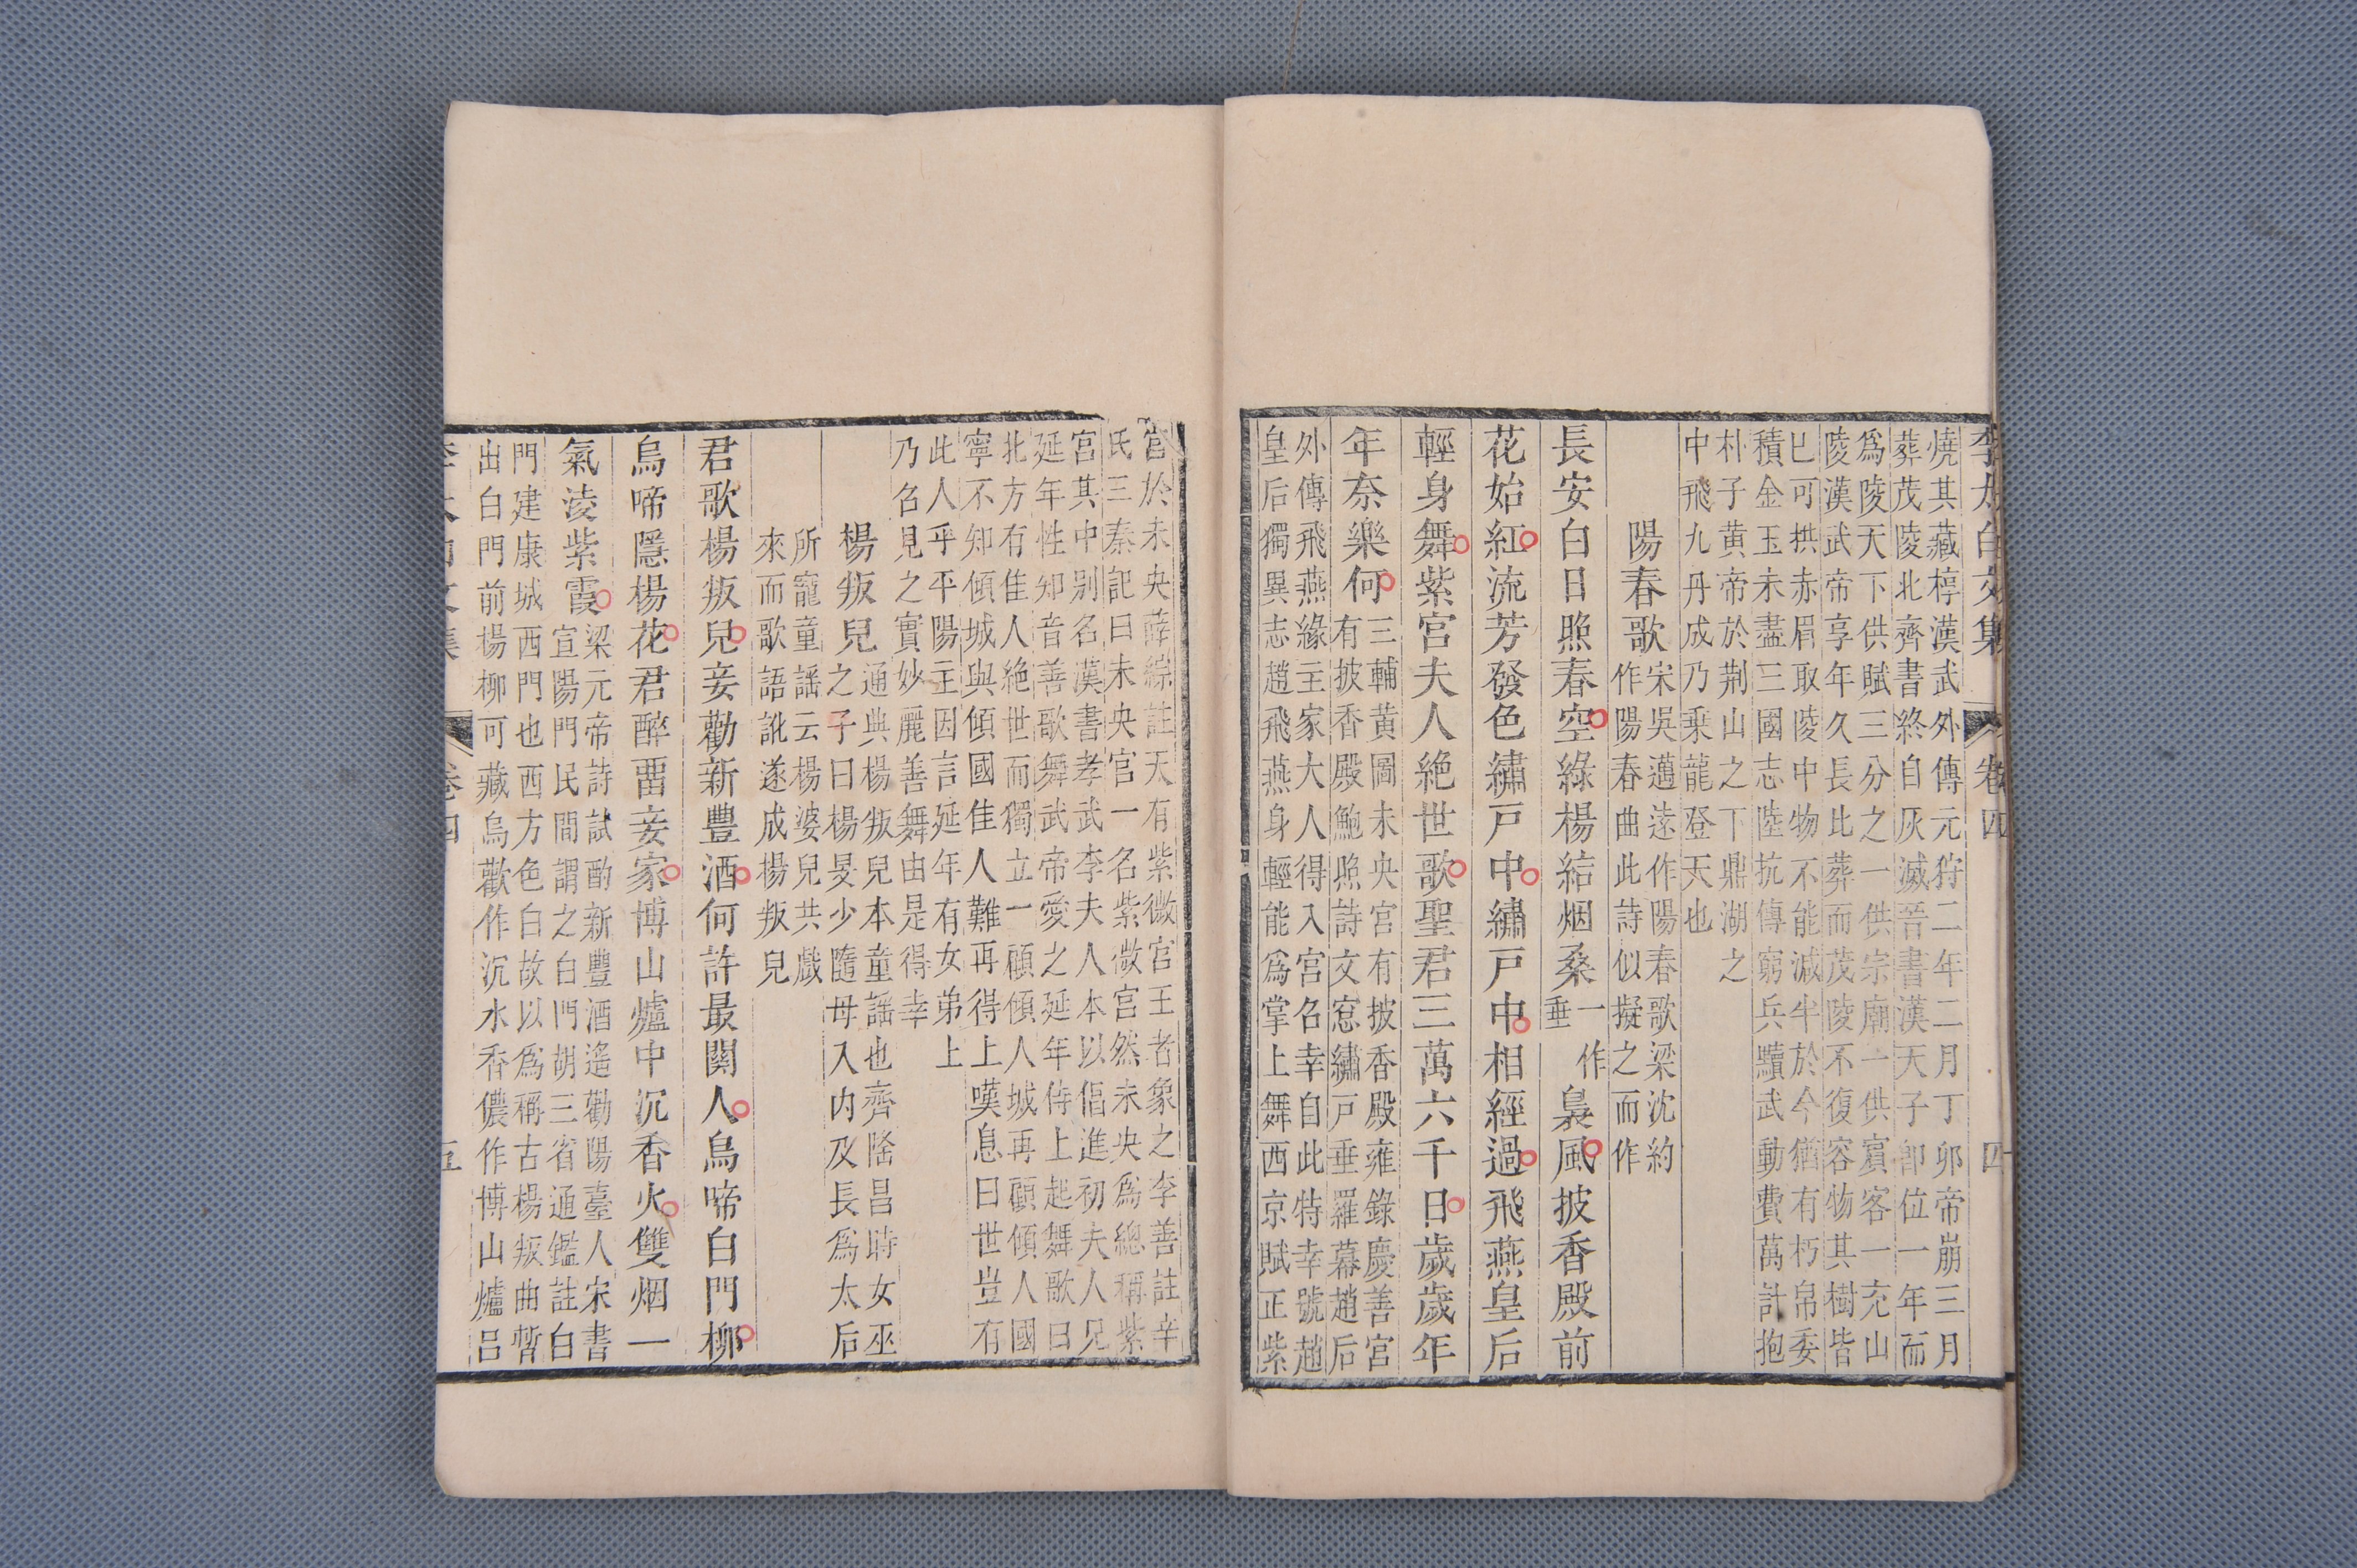 李太白文集 卷四 四
燒其藏椁漢武外傳元狩二年二月丁卯帝崩三月
葬茂陵北齊書終自灰滅晉書漢天子卽位一年而
爲陵天下供賦三分之一供宗廟一供賔客一充山
陵漢武帝享年久長比葬而茂陵不復容物其樹皆
巳可拱赤眉取陵中物不能減半於今猶有朽帛委
積金玉未盡三國志陸抗傳窮兵黷武動費萬計抱
朴子黄帝於荆山之下鼎湖之
中飛九丹成乃乗龍登天也
陽春歌
宋吳邁遠作陽春歌梁沈約
作陽春曲此詩似擬之而作
長安白日照春空綠楊結烟桑一作垂裊風披香殿前
花始紅流芳發色繡戸中繡戸中相經過飛燕皇后
輕身舞紫宮夫人絶世歌聖君三萬六千日歲歲年
年奈樂何
三輔黄圖未央宮有披香殿雍錄慶善宮
有披香殿鮑照詩文窓繡戸垂羅幕趙后
外傳飛燕緣主家大人得入宮名幸自此特幸號趙
皇后獨異志趙飛燕身輕能爲掌上舞西京賦正紫
宮於未央薛綜註天有紫微宮王者象之李善註辛
氏三秦記曰未央宮一名紫微宮然未央爲總稱紫
宮其中别名漢書孝武李夫人本以倡進初夫人兄
延年性知音善歌舞武帝愛之延年侍上起舞歌曰
北方有佳人絶世而獨立一顧傾人城再顧傾人國
寧不知傾城與傾國佳人難再得上嘆息曰世豈有
此人乎平陽主因言延年有女弟上
乃名見之實妙麗善舞由是得幸
楊叛兒
通典楊叛兒本童謡也齊隆昌時女巫
之子曰楊旻少隨母入内及長爲太后
所寵童謡云楊婆兒共戲
來而歌語訛遂成楊叛兒
君歌楊叛兒妾勸新豐酒何許最関人烏啼白門柳
烏啼隱楊花君醉畱妾家博山爐中沉香火雙烟一
氣淩紫霞
梁元帝詩試酌新豐酒遙勸陽臺人宋書
宣陽門民間謂之白門胡三省通鑑註白
門建康城西門也西方色白故以爲稱古楊叛曲暫
出白門前楊柳可藏烏歡作沉水香儂作博山爐吕
李太白文集 卷四 五